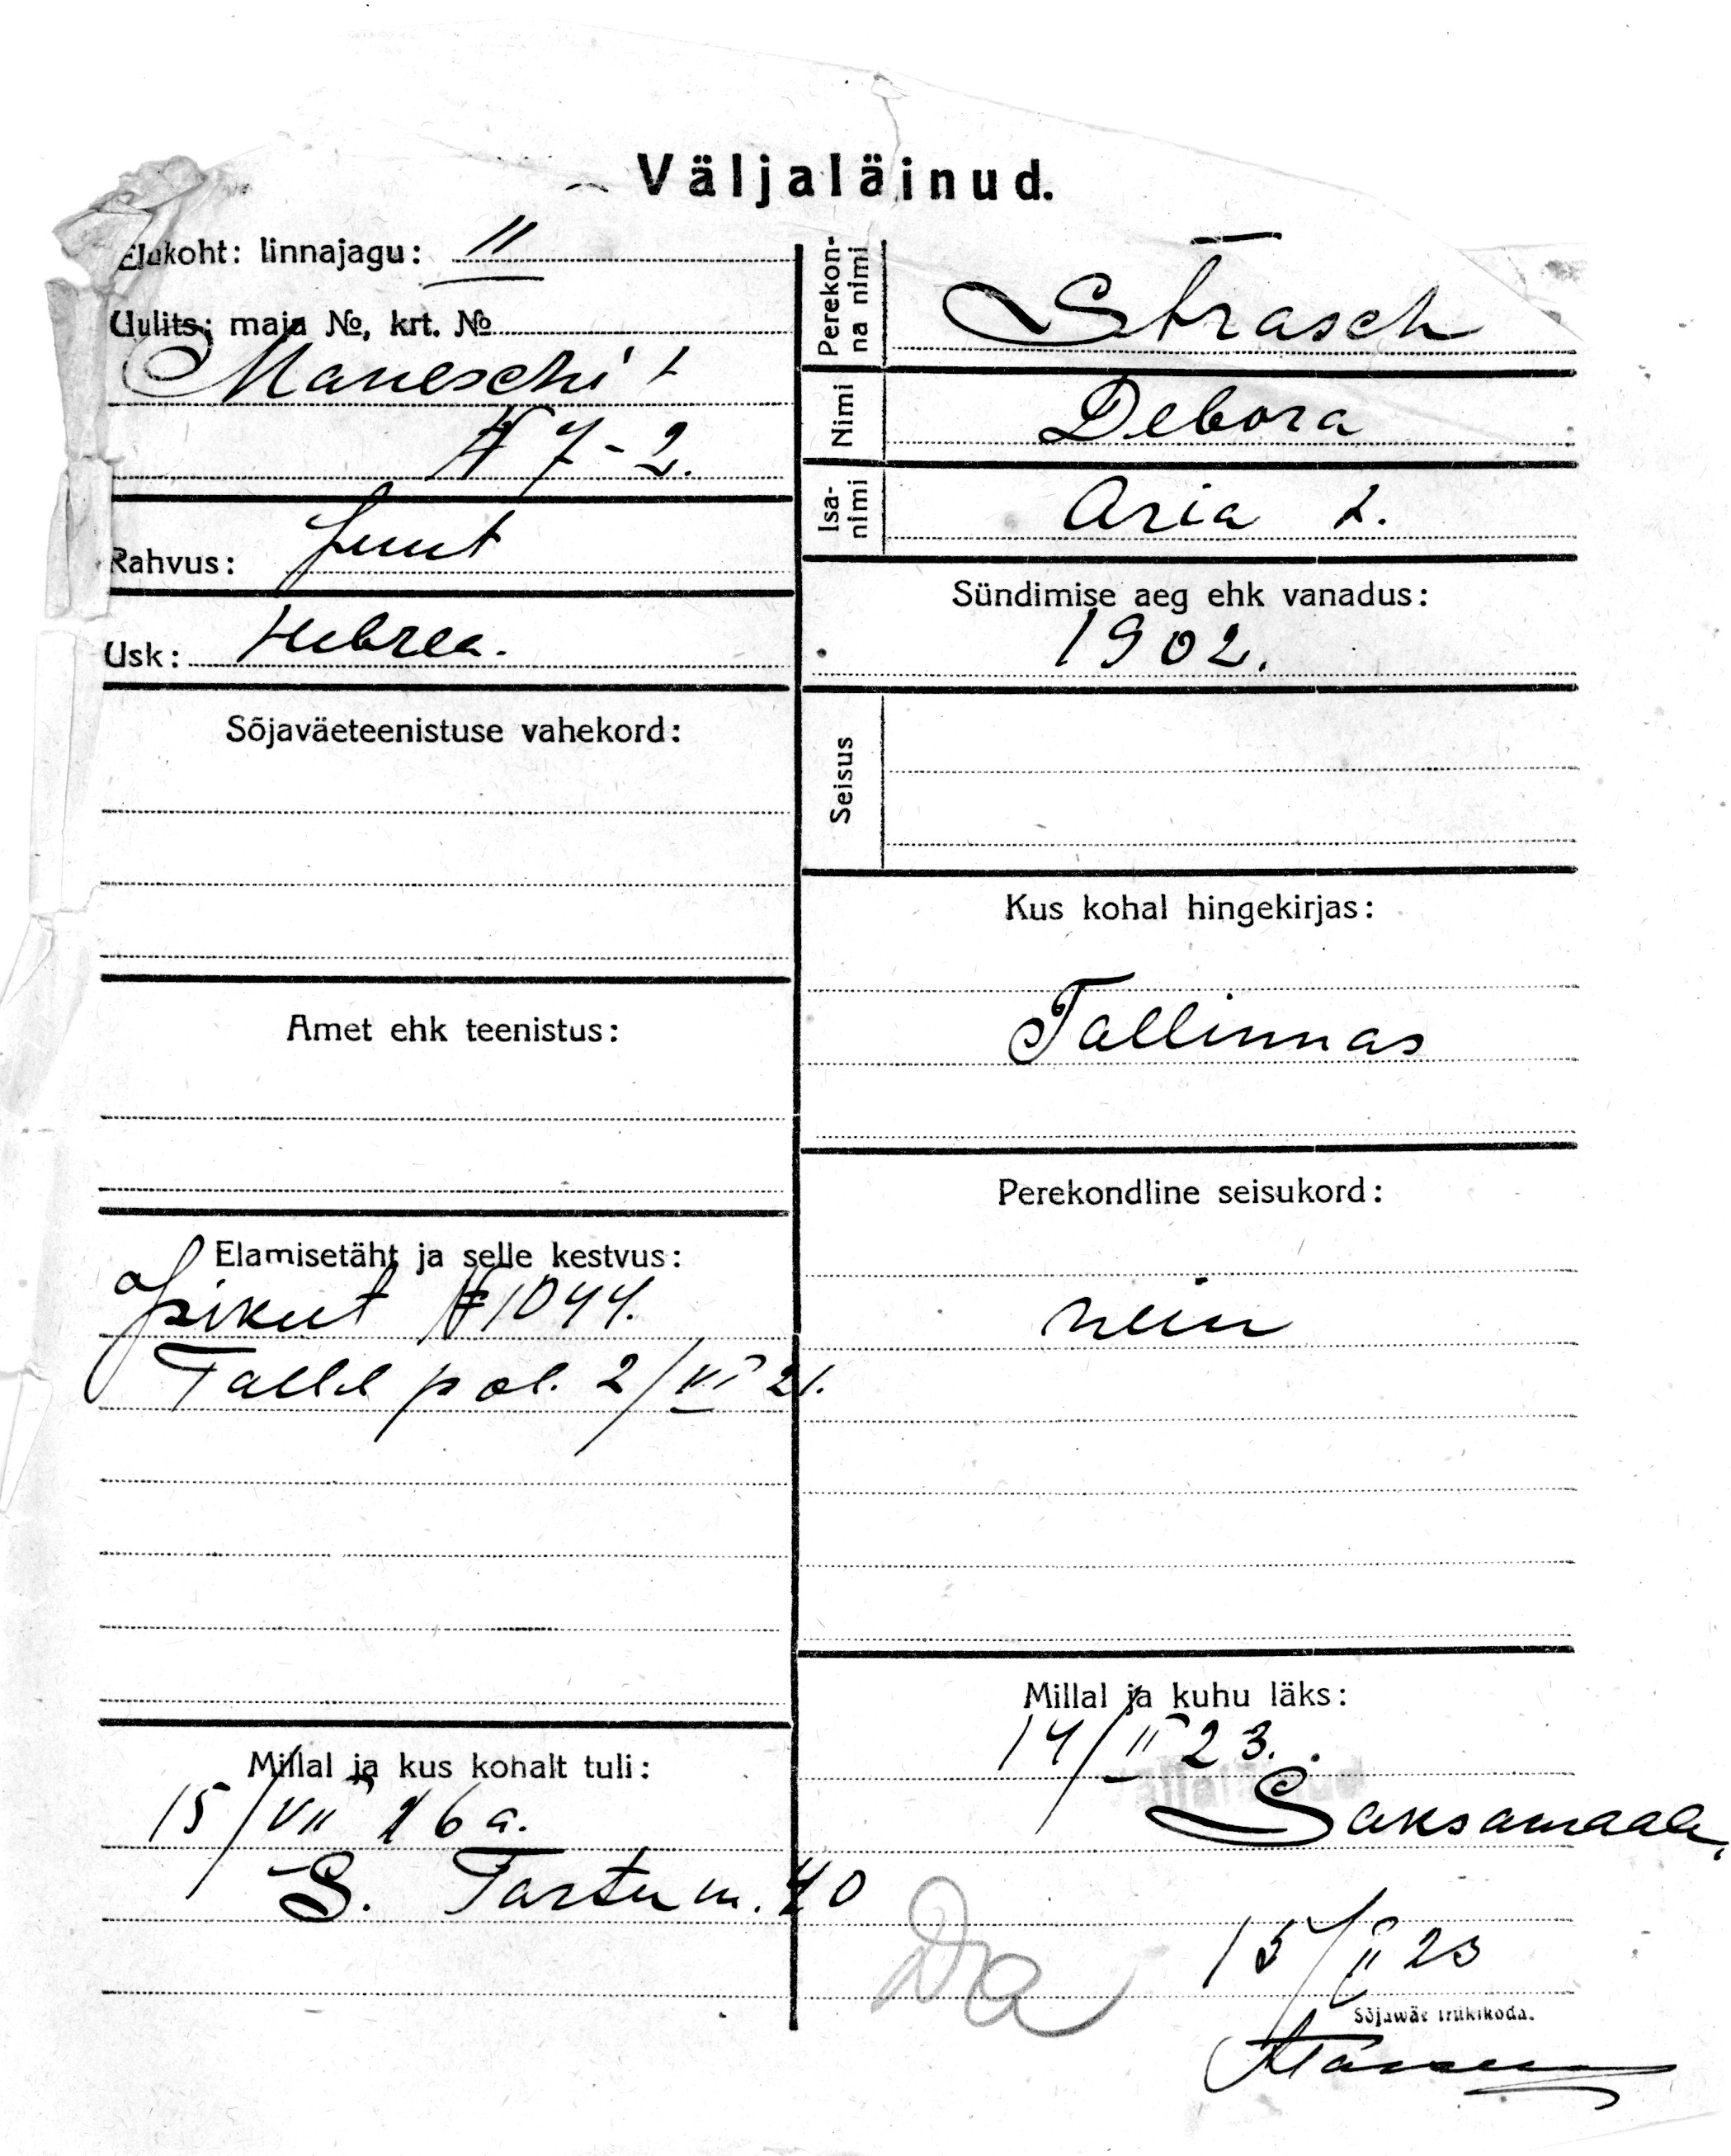 Väljaläinud.
Elukoht: linnajagu: II
Uulits: maja №, krt. №
Maneschi t
№ 7-2.
Rahvus: Juut
Usk: Hebrea.
Sõjaväeteenistuse vahekord:
Amet ehk teenistus:
Elamisetäht ja selle kestvus:
Isikut № 1044.
Tall. pol. 2/VI 21.
Millal ja kus kohalt tuli:
15/VII 16 a.
S. Tartu m. 40
Perekonna nimi
Strasch
Nimi
Debora
Isanimi
Aria t.
Sündimise aeg ehk vanadus:
1902.
Seisus
Kus kohal hingekirjas:
Tallinnas
Perekondline seisukord:
neiu
Millal ja kuhu läks:
14/II 23.
Saksamaale,
15/II 23
Sõjawäe trükikoda.